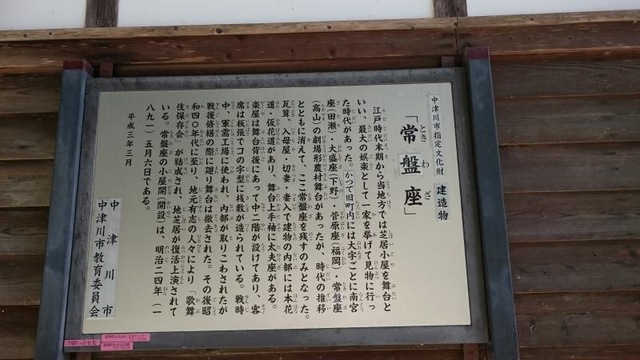 中津川市指定文化財 建造物
「常盤座」
ときわざ
江戸時代末期から当地方では芝居小屋を舞台と
いい、最大の娯楽として一家を挙げて見物に行っ
た時代があった。かつて旧町内には大字ごとに南宮
座(田瀬)・大盛座(下野)・菅原座(福岡)・常盤座
(高山)の劇場形農村舞台があったが、時代の推移
とともに消えて、ここ常盤座を残すのみとなった。
瓦葺、入母屋・切妻・妻入で建物の内部には本花
道・仮花道があり、舞台上手袖に太夫座がある。
楽屋は舞台背後にあって中二階が設けてあり、客
席は板張でコの字型に桟敷が造られている。戦時
中、軍需工場に使われ、内部が取りこわされたが
戦後修繕の際に廻り舞台は撤去された。その後昭
和四〇年代に至り、地元有志の人々により「歌舞
伎保存会」が結成され、地芝居が復活上演されて
いる。常盤座の小屋開(開設)は、明治二四年(一
八九一)五月六日である。
平成三年三月
中津川市
中津川市教育委員会